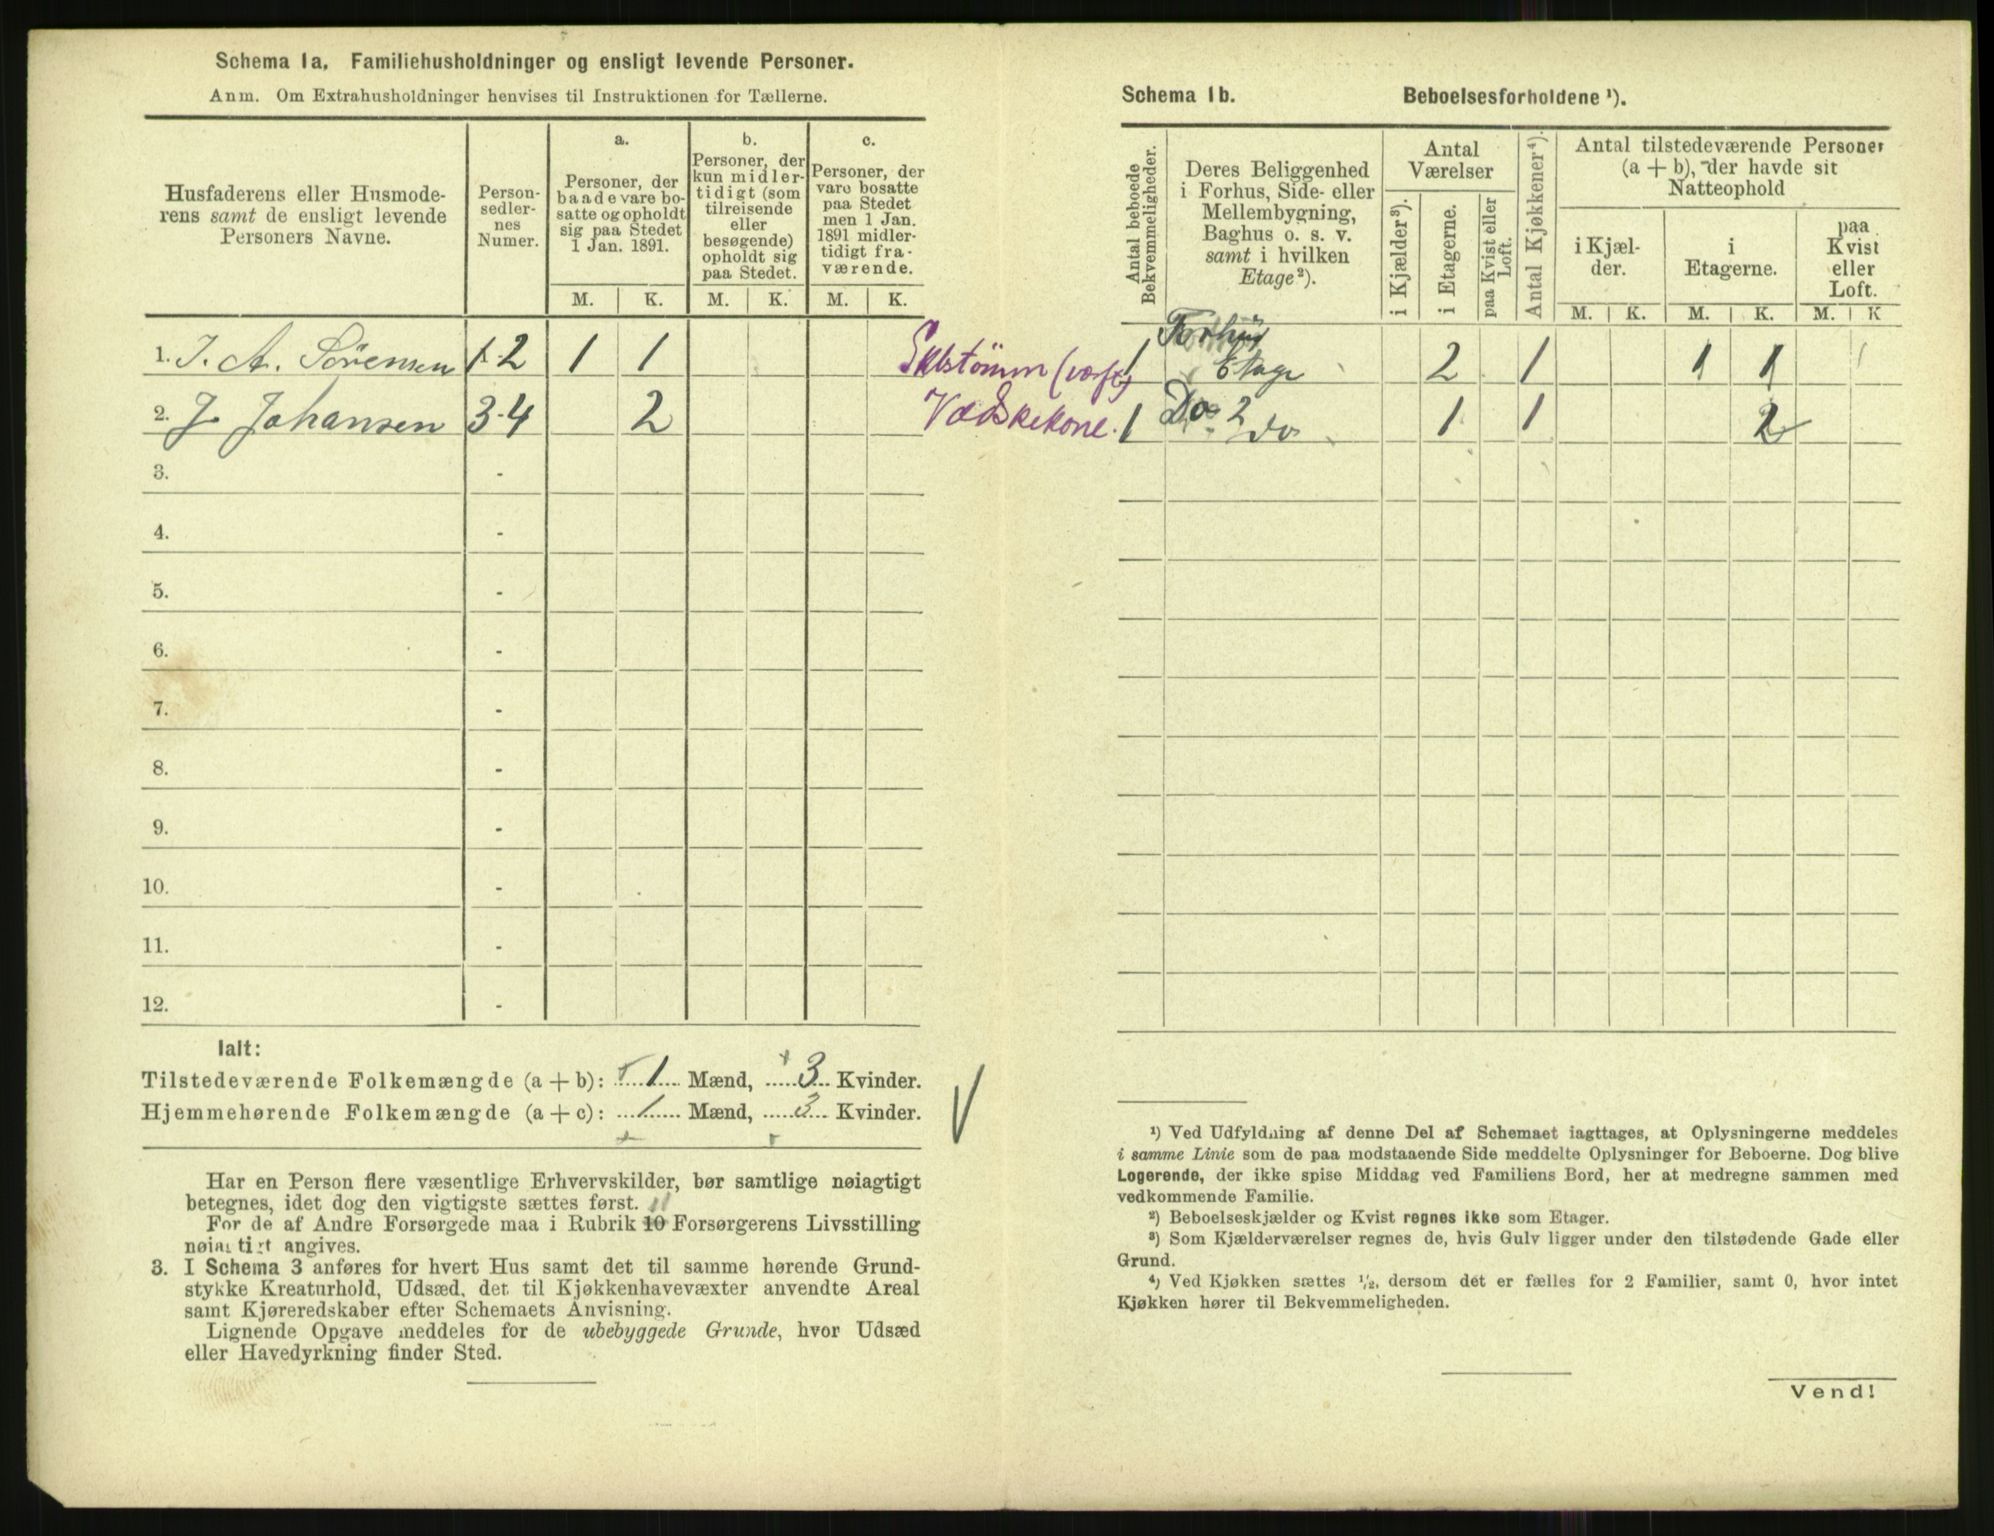 Schema 1a. Familiehusholdninger og ensligt levende Personer.
Anm. Om Extrahusholdninger henvises til Instruktionen for Tællerne.
Husfaderens eller Husmode-
rens samt de ensligt levende
Personers Navne.
Person-
sedler-
nes
Numer.
a.
Personer, der
baade vare bo-
satte og opholdt
sig paa Stedet
1 Jan. 1891.
b.
Personer, der
kun midler-
tidigt (som
tilreisende
eller
besøgende)
opholdt sig
paa Stedet.
c.
Personer, der
vare bosatte
paa Stedet
men 1 Jan.
1891 midler-
tidigt fra-
værende.
M. K. M. K. M. K.
1. J. A. Sörensen 1-2 1 1
2. J Johansen 3-4 2
3. -
4. -
5. -
6. -
7. -
8. -
9. -
10. -
11. -
12. -
Ialt:
Tilstedeværende Folkemængde (a + b): 1 Mænd, 3 Kvinder.
Hjemmehørende Folkemængde (a + c): 1 Mænd, 3 Kvinder.
Har en Person flere væsentlige Erhvervskilder, bør samtlige nøiagtigt
betegnes, idet dog den vigtigste sættes først. 11
For de af Andre Forsørgede maa i Rubrik 10 Forsørgerens Livsstilling
nøiagtigt angives.
3. I Schema 3 anføres for hvert Hus samt det til samme hørende Grund-
stykke Kreaturhold, Udsæd, det til Kjøkkenhavevæxter anvendte Areal
samt Kjøreredskaber efter Schemaets Anvisning.
Lignende Opgave meddeles for de ubebyggede Grunde, hvor Udsæd
eller Havedyrkning finder Sted.
Schema 1b. Beboelsesforholdene ¹).
Antal beboede
Bekvemmeligheder.
Deres Beliggenhed
i Forhus, Side- eller
Mellembygning,
Baghus o. s. v.
samt i hvilken
Etage²).
Antal
Værelser
i Kjælder³).
i Etagerne.
paa Kvist eller
Loft.
Antal Kjøkkener⁴).
Antal tilstedeværende Personer
(a + b), der havde sit
Natteophold
i Kjæl-
der.
i
Etagerne.
paa
Kvist
eller
Loft.
M. K. M. K. M. K
1 Forhus
Etage 2 1 1 1
Vadskekone. 1 Do 2
do 1 1 2
¹) Ved Udfyldning af denne Del af Schemaet iagttages, at Oplysningerne meddeles
i samme Linie som de paa modstaaende Side meddelte Oplysninger for Beboerne. Dog blive
Logerende, der ikke spise Middag ved Familiens Bord, her at medregne sammen med
vedkommende Familie.
²) Beboelseskjælder og Kvist regnes ikke som Etager.
³) Som Kjælderværelser regnes de, hvis Gulv ligger under den tilstødende Gade eller
Grund.
⁴) Ved Kjøkken sættes ½, dersom det er fælles for 2 Familier, samt 0, hvor intet
Kjøkken hører til Bekvemmeligheden.
Vend!